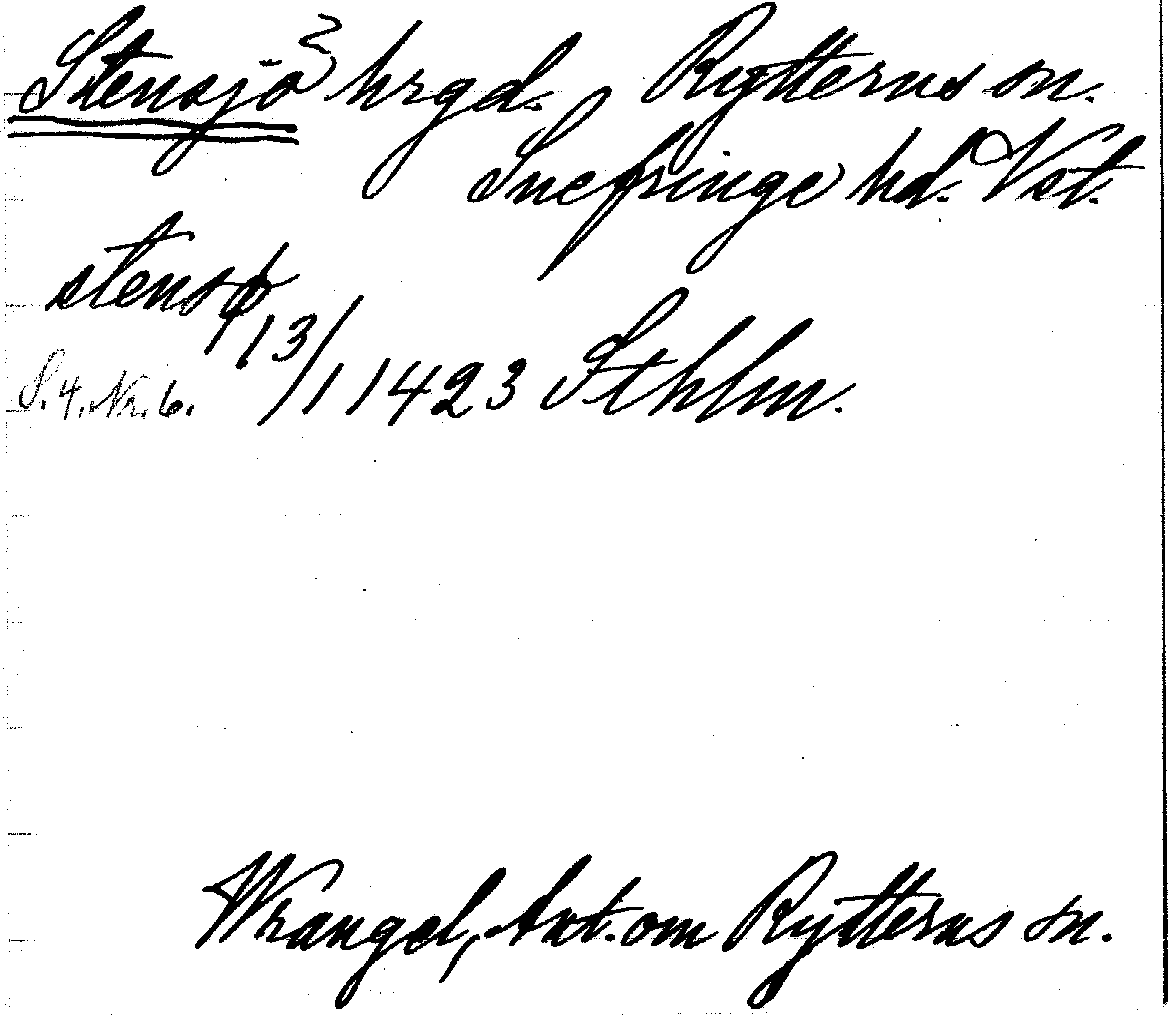 Stensjö hrgd. Rytterns sn.
Snefringe hd. Vst.
stensø
13/1 1423 Sthlm.
S. 4. Nr. 6.
Wrangel, Ant. om Rytterns sn.